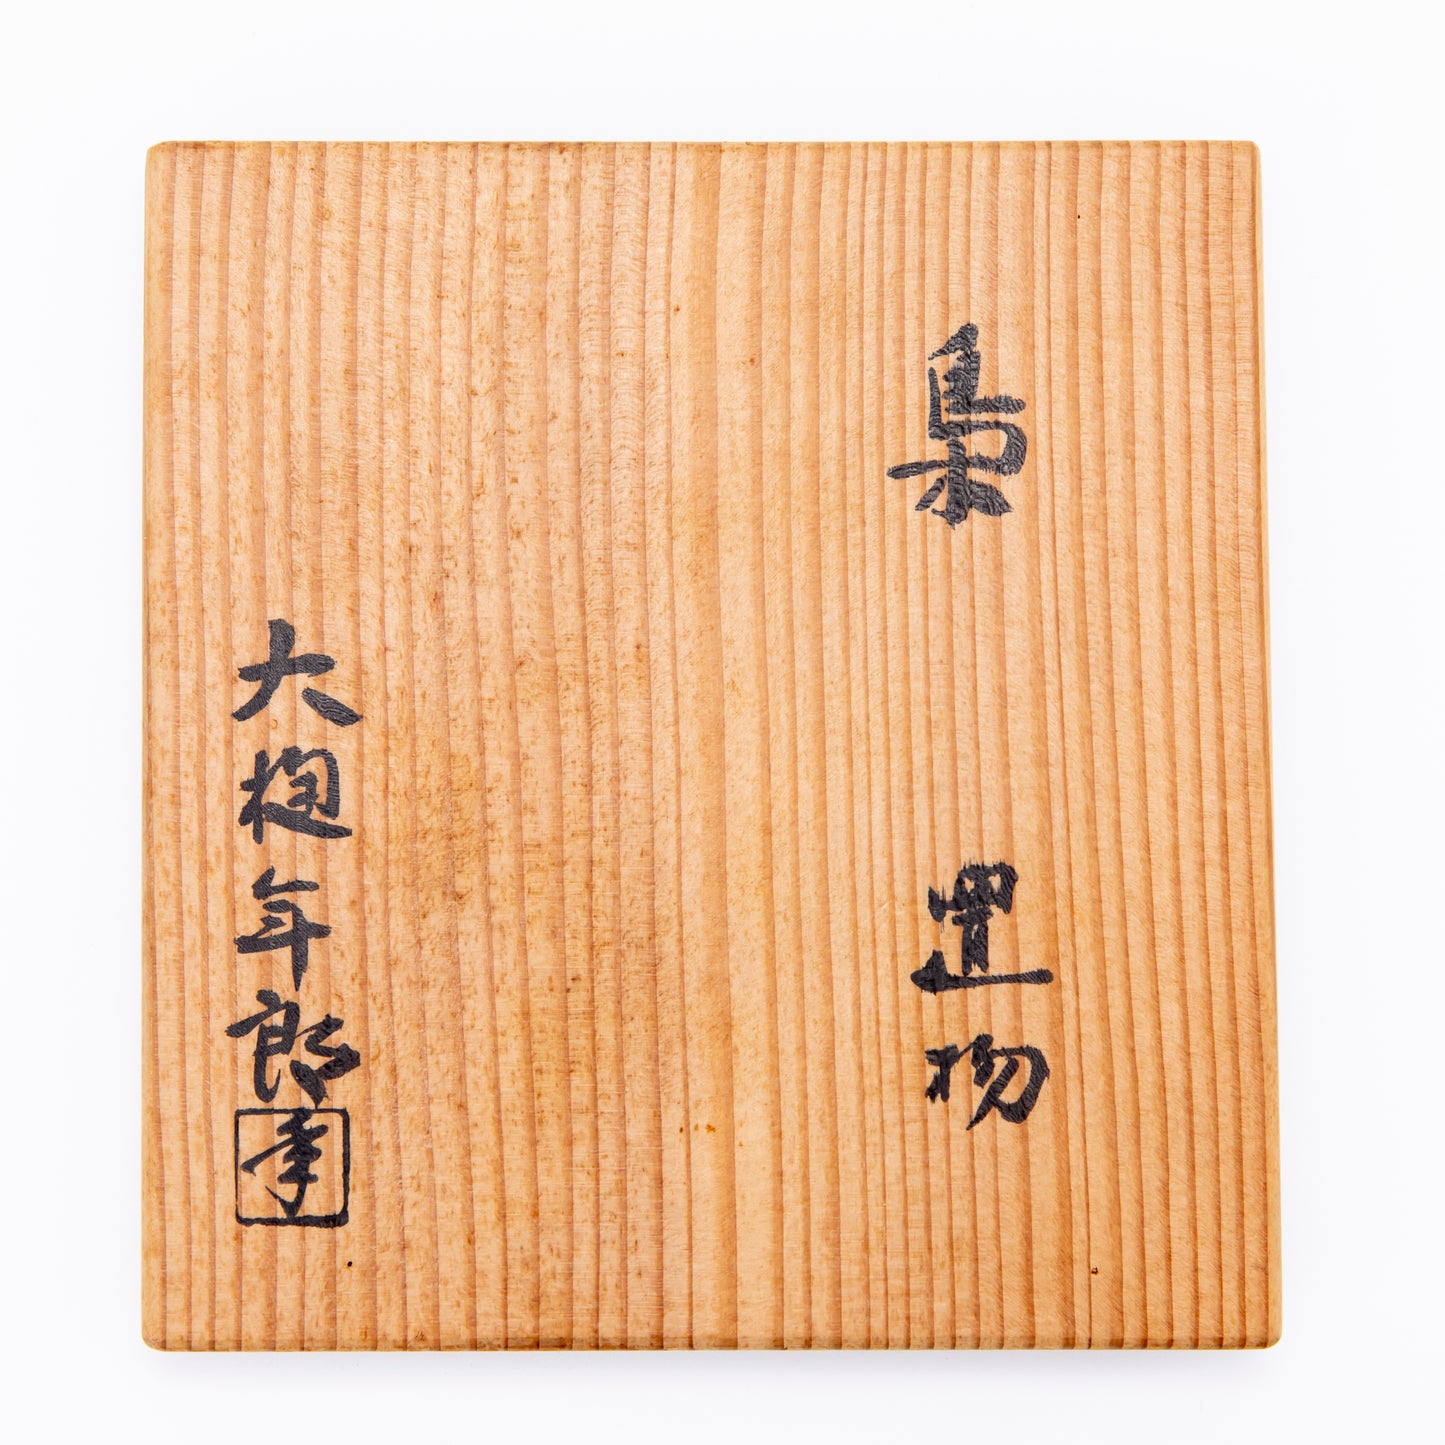 梟 置物
大樋年郎
年